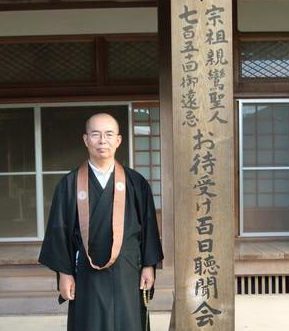 宗祖親鸞聖人
七百五十回御遠忌
お待受け百日聴聞会